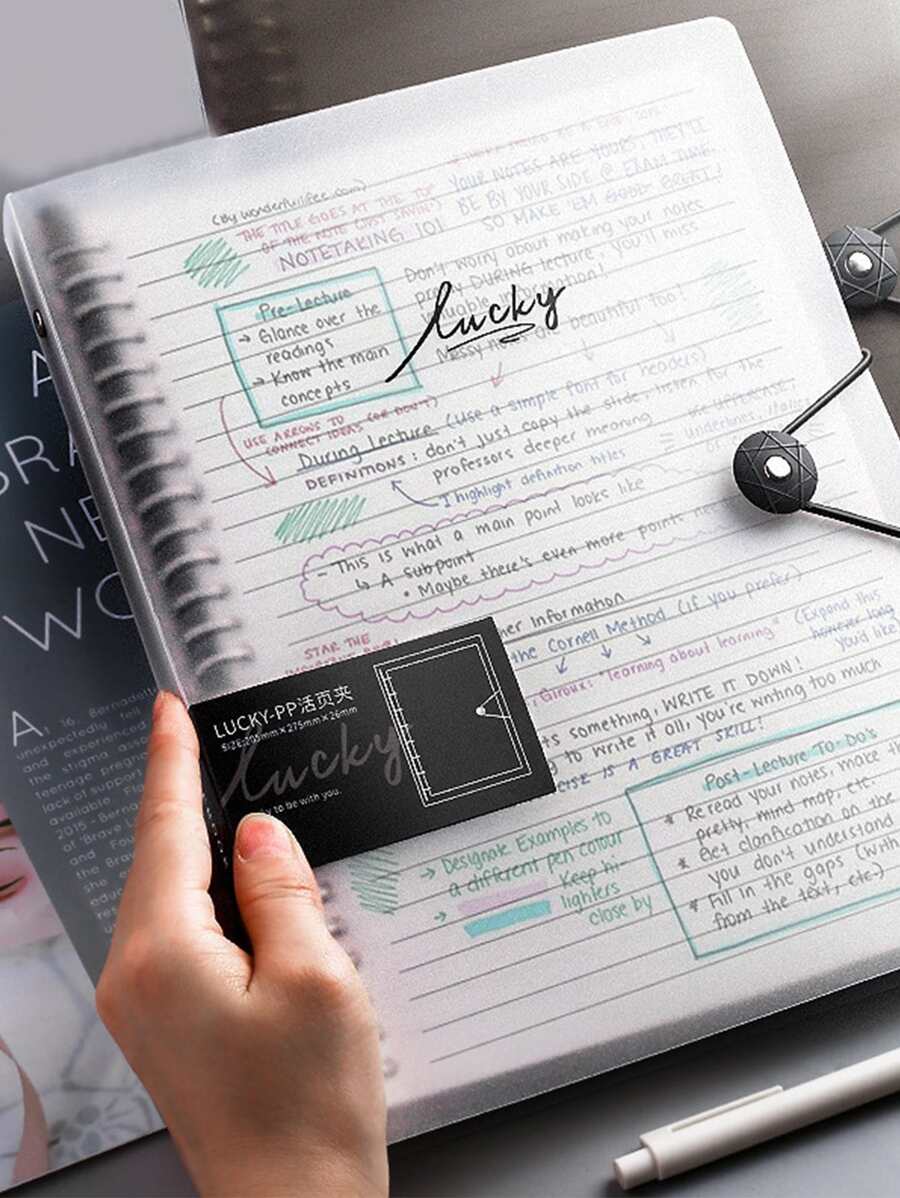 (By wonderfulifee.com)
THE TITLE GOES AT THE TOP
OF THE NOTE (JUST SAYIN')
NOTETAKING 101
YOUR NOTES ARE YOURS, THEY'LL
BE BY YOUR SIDE @ EXAM TIME,
SO MAKE 'EM GOOD GREAT!
Pre-Lecture
→ Glance over the
readings
→ Know the main
concepts
Don't worry about making your notes
pretty DURING lecture, you'll miss
valuable information!
Messy notes are beautiful too!
lucky
USE ARROWS TO
CONNECT IDEAS (OR DON'T)
During Lecture (Use a simple font for headers)
DEFINITIONS: don't just copy the slide, listen for the
professors deeper meaning
= use UPPERCASE,
underlines, italics
I highlight definition titles
- This is what a main point looks like
↳ A subpoint
• Maybe there's even more points
STAR THE
her Information
the Cornell Method (if you prefer)
Giroux: "learning about learning"
(Expand this
however long
you'd like
t's something, WRITE IT DOWN!
to write it all, you're writing too much
IS A GREAT SKILL!
LUCKY-PP活页夹
SIZE:205mm×275mm×26mm
lucky
to be with you.
Post-Lecture To-Do's
* Re read your notes, make th
pretty, mind map, etc.
* Get clarification on the
you don't understand
* Fill in the gaps (with
from the text, etc)
→ Designate Examples to
a different pen colour
→ Keep hi-
lighters
close by
A
NE
WO
A, 16, Bernadett
unexpectedly fell
and experienced
the stigma
teenage pregna
lack of support
available.
2015 - Berna
of 'Brave
and Fou
the Brav
she